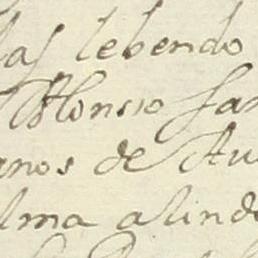 las lebendo
Alonsso San
anos de Au
lma alinda